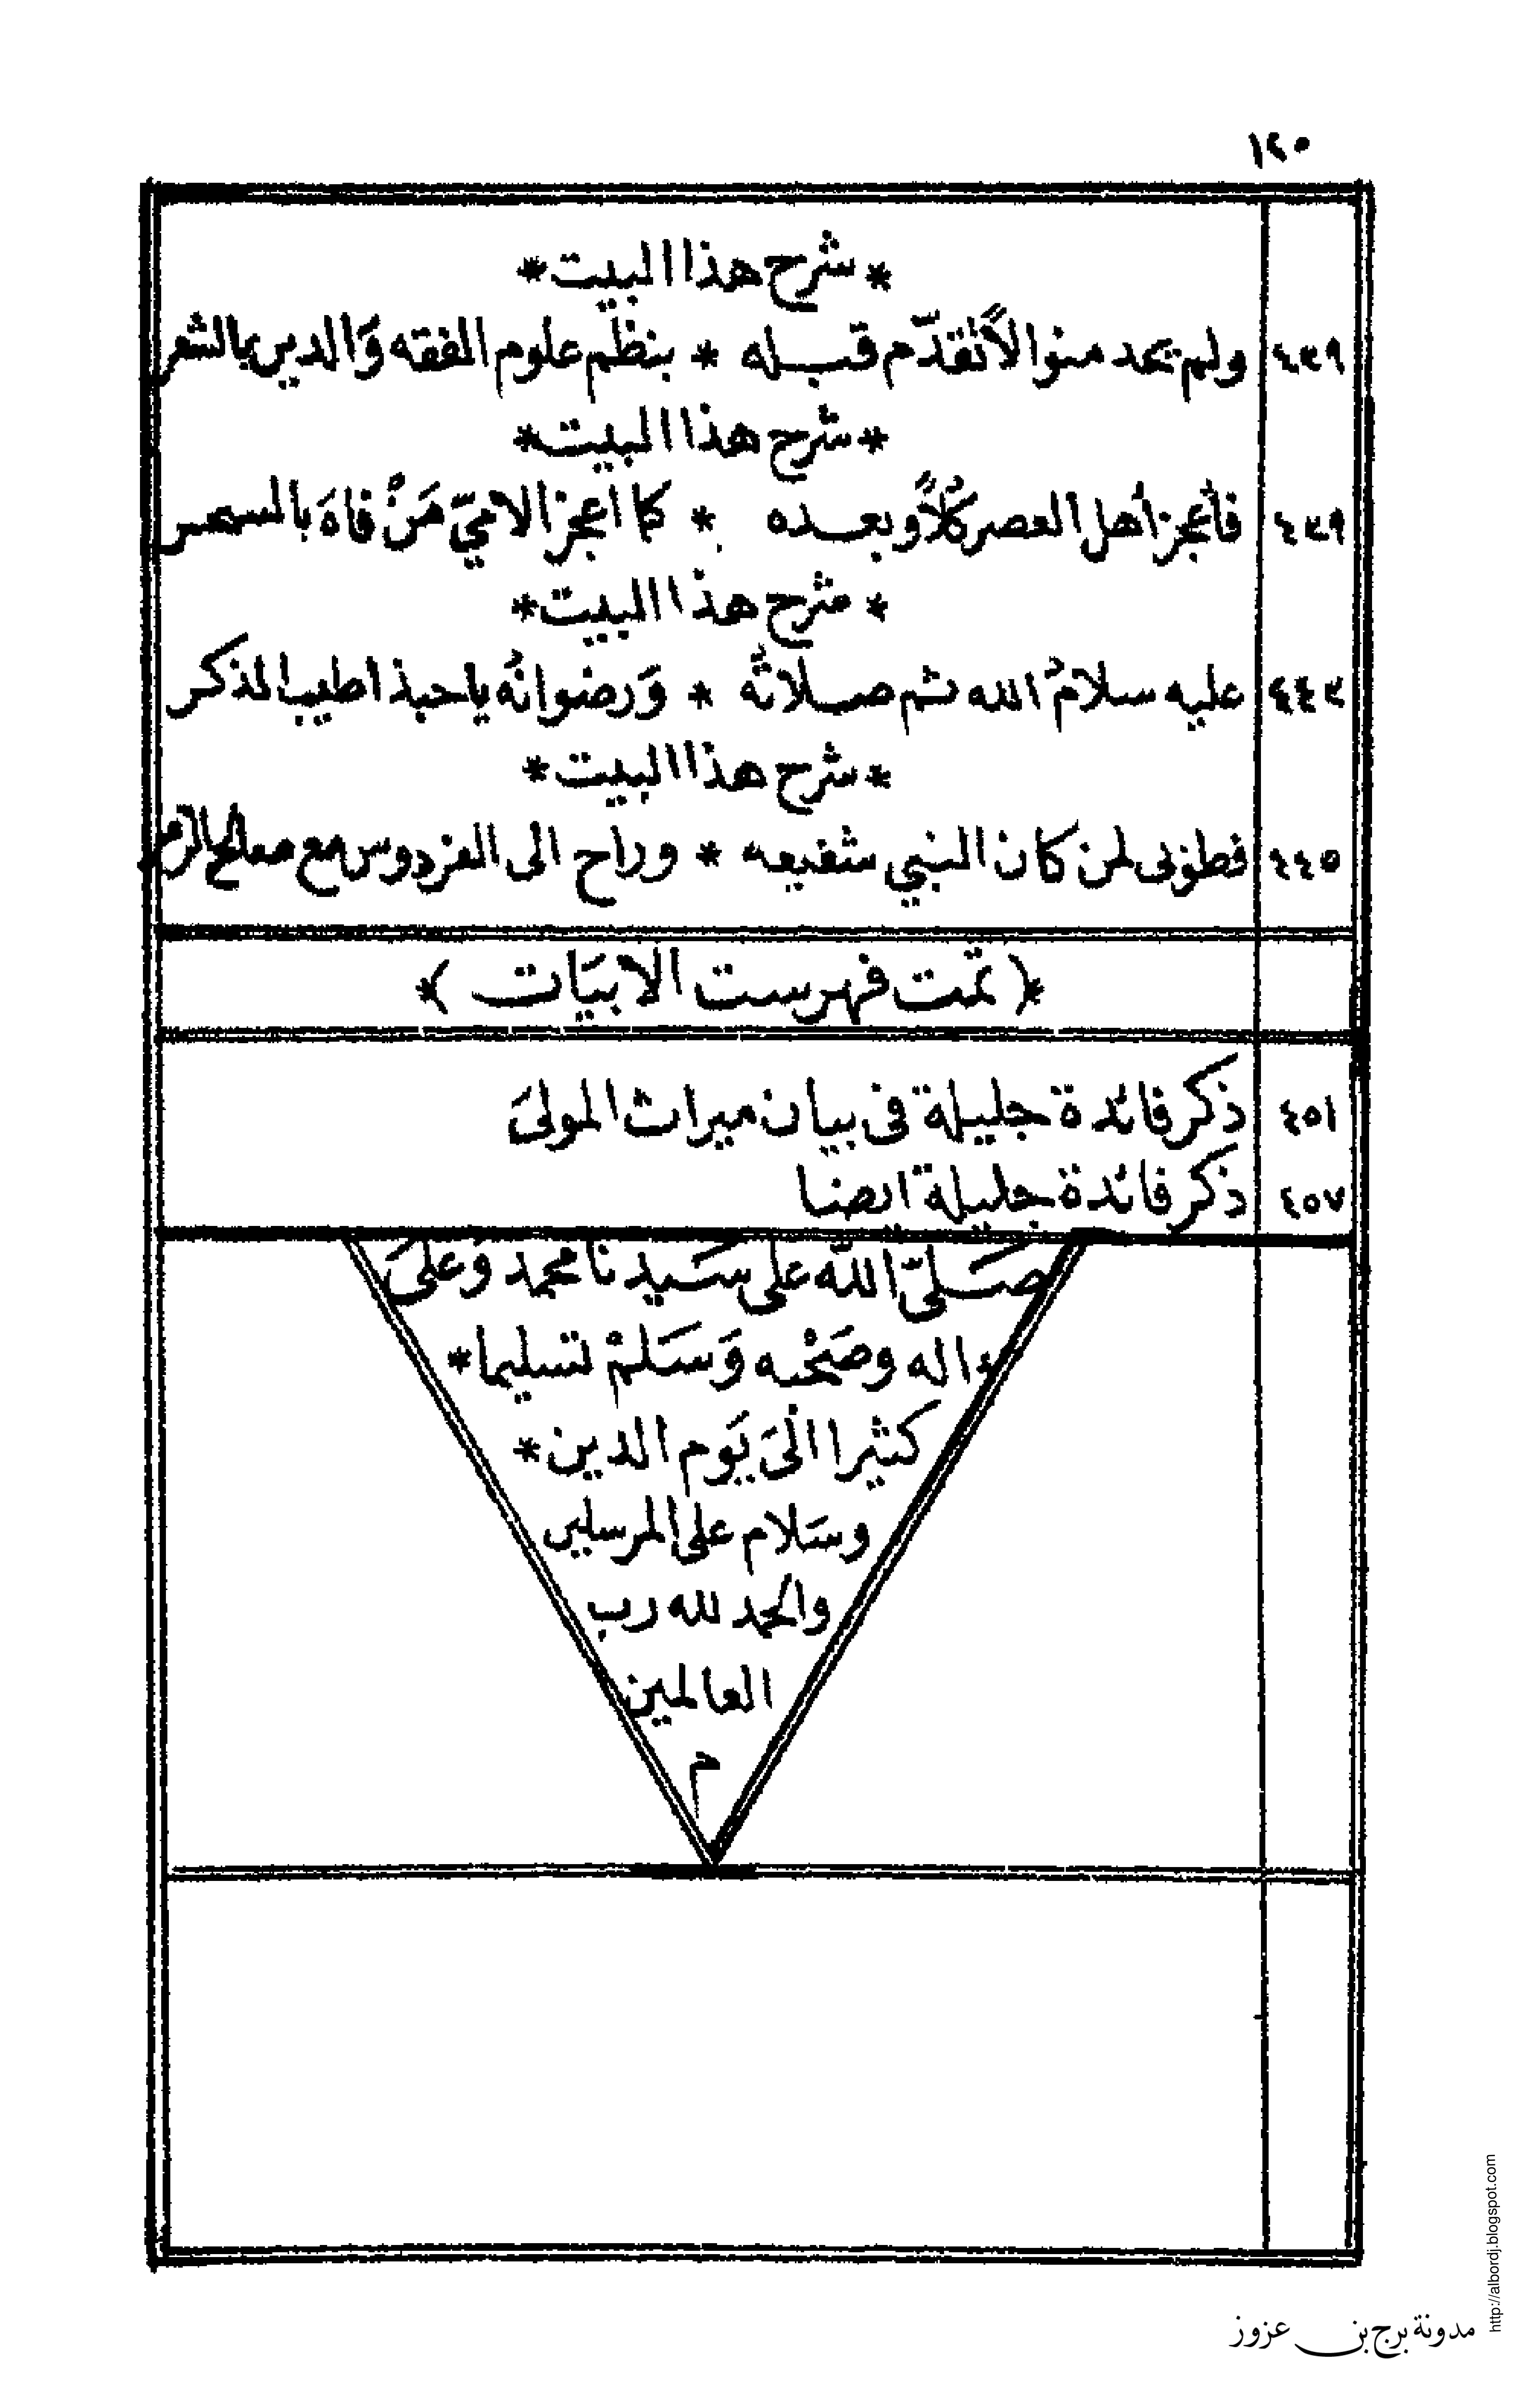 ١٢٥
* شرح هذا البيت *
٤٣٩ ولم يحد منوالاً تقدّم قبله * بنظم علوم الفقه وَالدين بالشعر
* شرح هذا البيت *
٤٣٩ فأعجز أهل العصر كُلاًّ وبعده * كما اعجز الاميّ مَنْ فاهَ بالسحر
* شرح هذا البيت *
٤٤٣ عليه سلامُ الله ثم صلاتُه * وَرضوانُه ياحبذ اطيب الذكر
* شرح هذا البيت *
٤٤٥ فطوبى لمن كان النبي شفيعه * وراح الى الفردوس مع صالح
*( تمت فهرست الابيَات )*
٤٥١ ذكر فائدة جليلة فى بيان ميراث المولىَ
٤٥٧ ذكر فائدة جليلة ايضا
صَلىّ الله على سَيدنا محمد وَعلىَ
* اله وصَحْبه وَسَلمْ تسليما *
كثيرا الىَ يَوم الدين *
وسَلام على المرسلين
والحمد لله رب
العالمين
م
http://albordj.blogspot.com
مدونة برج بن عزوز